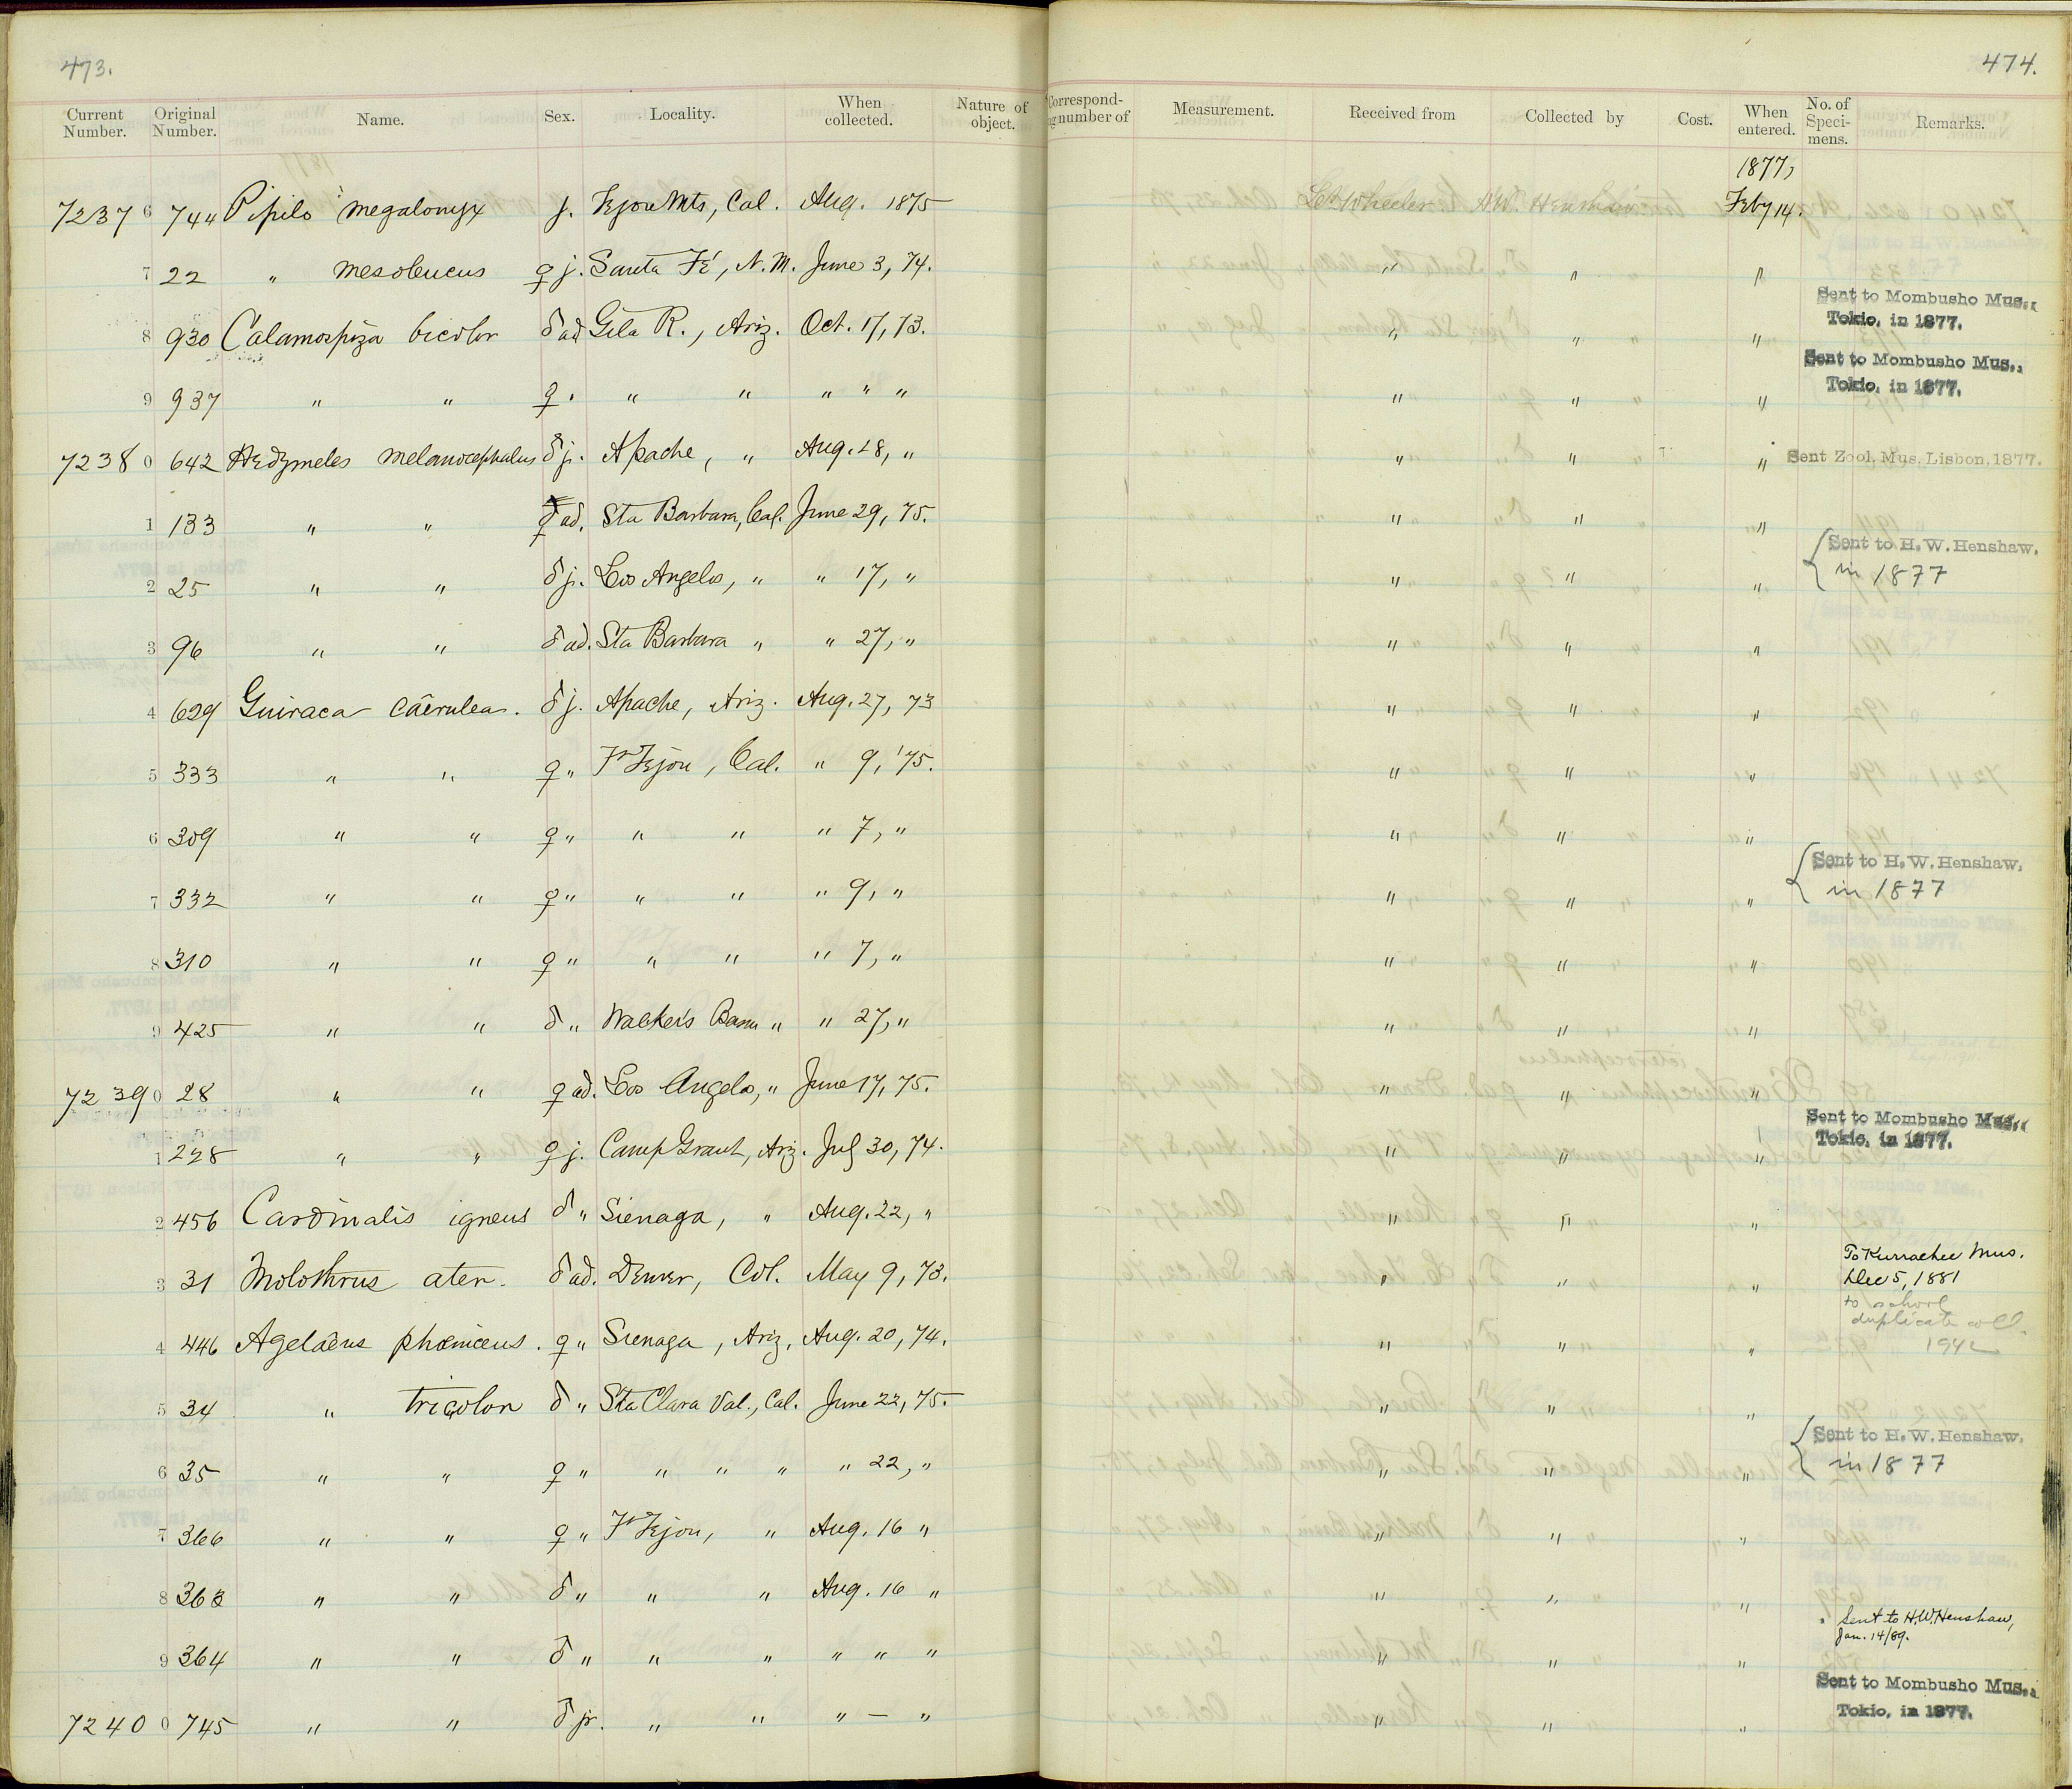 473.
474.
Current Number. Original Number. Name. Sex. Locality. When collected. Nature of object. Correspond- number of Measurement. Received from Collected by Cost. When entered. No. of Speci- mens. Remarks.
1877,
7237 6 744 Pipilo megalonyx j. Tejon Mts, Cal. Aug. 1875 Lt Wheeler. H.W. Henshaw Feby 14.
7 22 " mesoleucus ♀ j. Santa Fé, N.M. June 3, 74. " " "
8 930 Calamospiza bicolor ♂ ad Gila R., Ariz. Oct. 17, 73. " " " Sent to Mombusho Mus., Tokio, in 1877.
9 937 " " ♀. " " " " " " " " Sent to Mombusho Mus., Tokio, in 1877.
7238 0 642 Hedymeles melanocephalus ♂ j. Apache, " Aug. 28, " " " " Sent Zool. Mus. Lisbon, 1877.
1 133 " " ♀ ad. Sta Barbara, Cal. June 29, 75. " " "
2 25 " " ♂ j. Los Angelos, " " 17, " " " " { Sent to H. W. Henshaw. in 1877
3 96 " " ♂ ad. Sta Barbara " " 27, " " " "
4 629 Guiraca caerulea. ♂ j. Apache, Ariz. Aug. 27, 73 " " "
5 333 " " ♀ " Ft Tejon, Cal. " 9, '75. " " "
6 309 " " ♀ " " " " 7, " " " "
7 332 " " ♀ " " " " 9, " " " " { Sent to H. W. Henshaw. in 1877
8 310 " " ♀ " " " " 7, " " " "
9 425 " " ♂ " Walker's Basin " " 27, " " " "
7239 0 28 " " ♀ ad. Los Angelos, " June 17, 75. " " "
1 228 " " ♀ j. Camp Grant, Ariz. July 30, 74. " " " Sent to Mombusho Mus., Tokio, in 1877.
2 456 Cardinalis igneus ♂ " Sienaga, " Aug. 22, " " " "
3 31 Molothrus ater. ♂ ad. Denver, Col. May 9, 73. " " " To Kurrachee Mus. Dec 5, 1881
to school
duplicate coll.
1942
4 446 Agelaeus phoeniceus. ♀ " Sienaga, Ariz. Aug. 20, 74. " " "
5 34 " tricolor ♂ " Sta Clara Val., Cal. June 22, 75. " " "
6 35 " " ♀ " " " " " 22, " " " " { Sent to H. W. Henshaw. in 1877
7 366 " " ♀ " Ft Tejon, " Aug. 16 " " " "
8 363 " " ♂ " " " Aug. 16 " " " "
9 364 " " ♂ " " " " " " " " " Sent to H.W. Henshaw, Jan. 14/89.
7240 0 745 " " ♂ jr. " " " — " " " " Sent to Mombusho Mus., Tokio, in 1877.